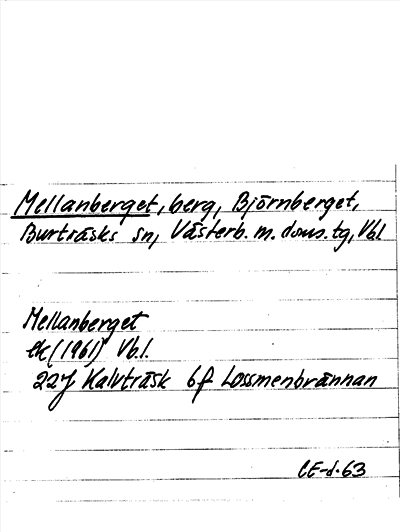 Mellanberget, berg, Björnberget,
Burträsks sn, Västerb. m. doms. tg, Vbl
Mellanberget
ek (1961) Vbl.
22J Kalvträsk 6f Lossmenbrännan
CE-d. 63